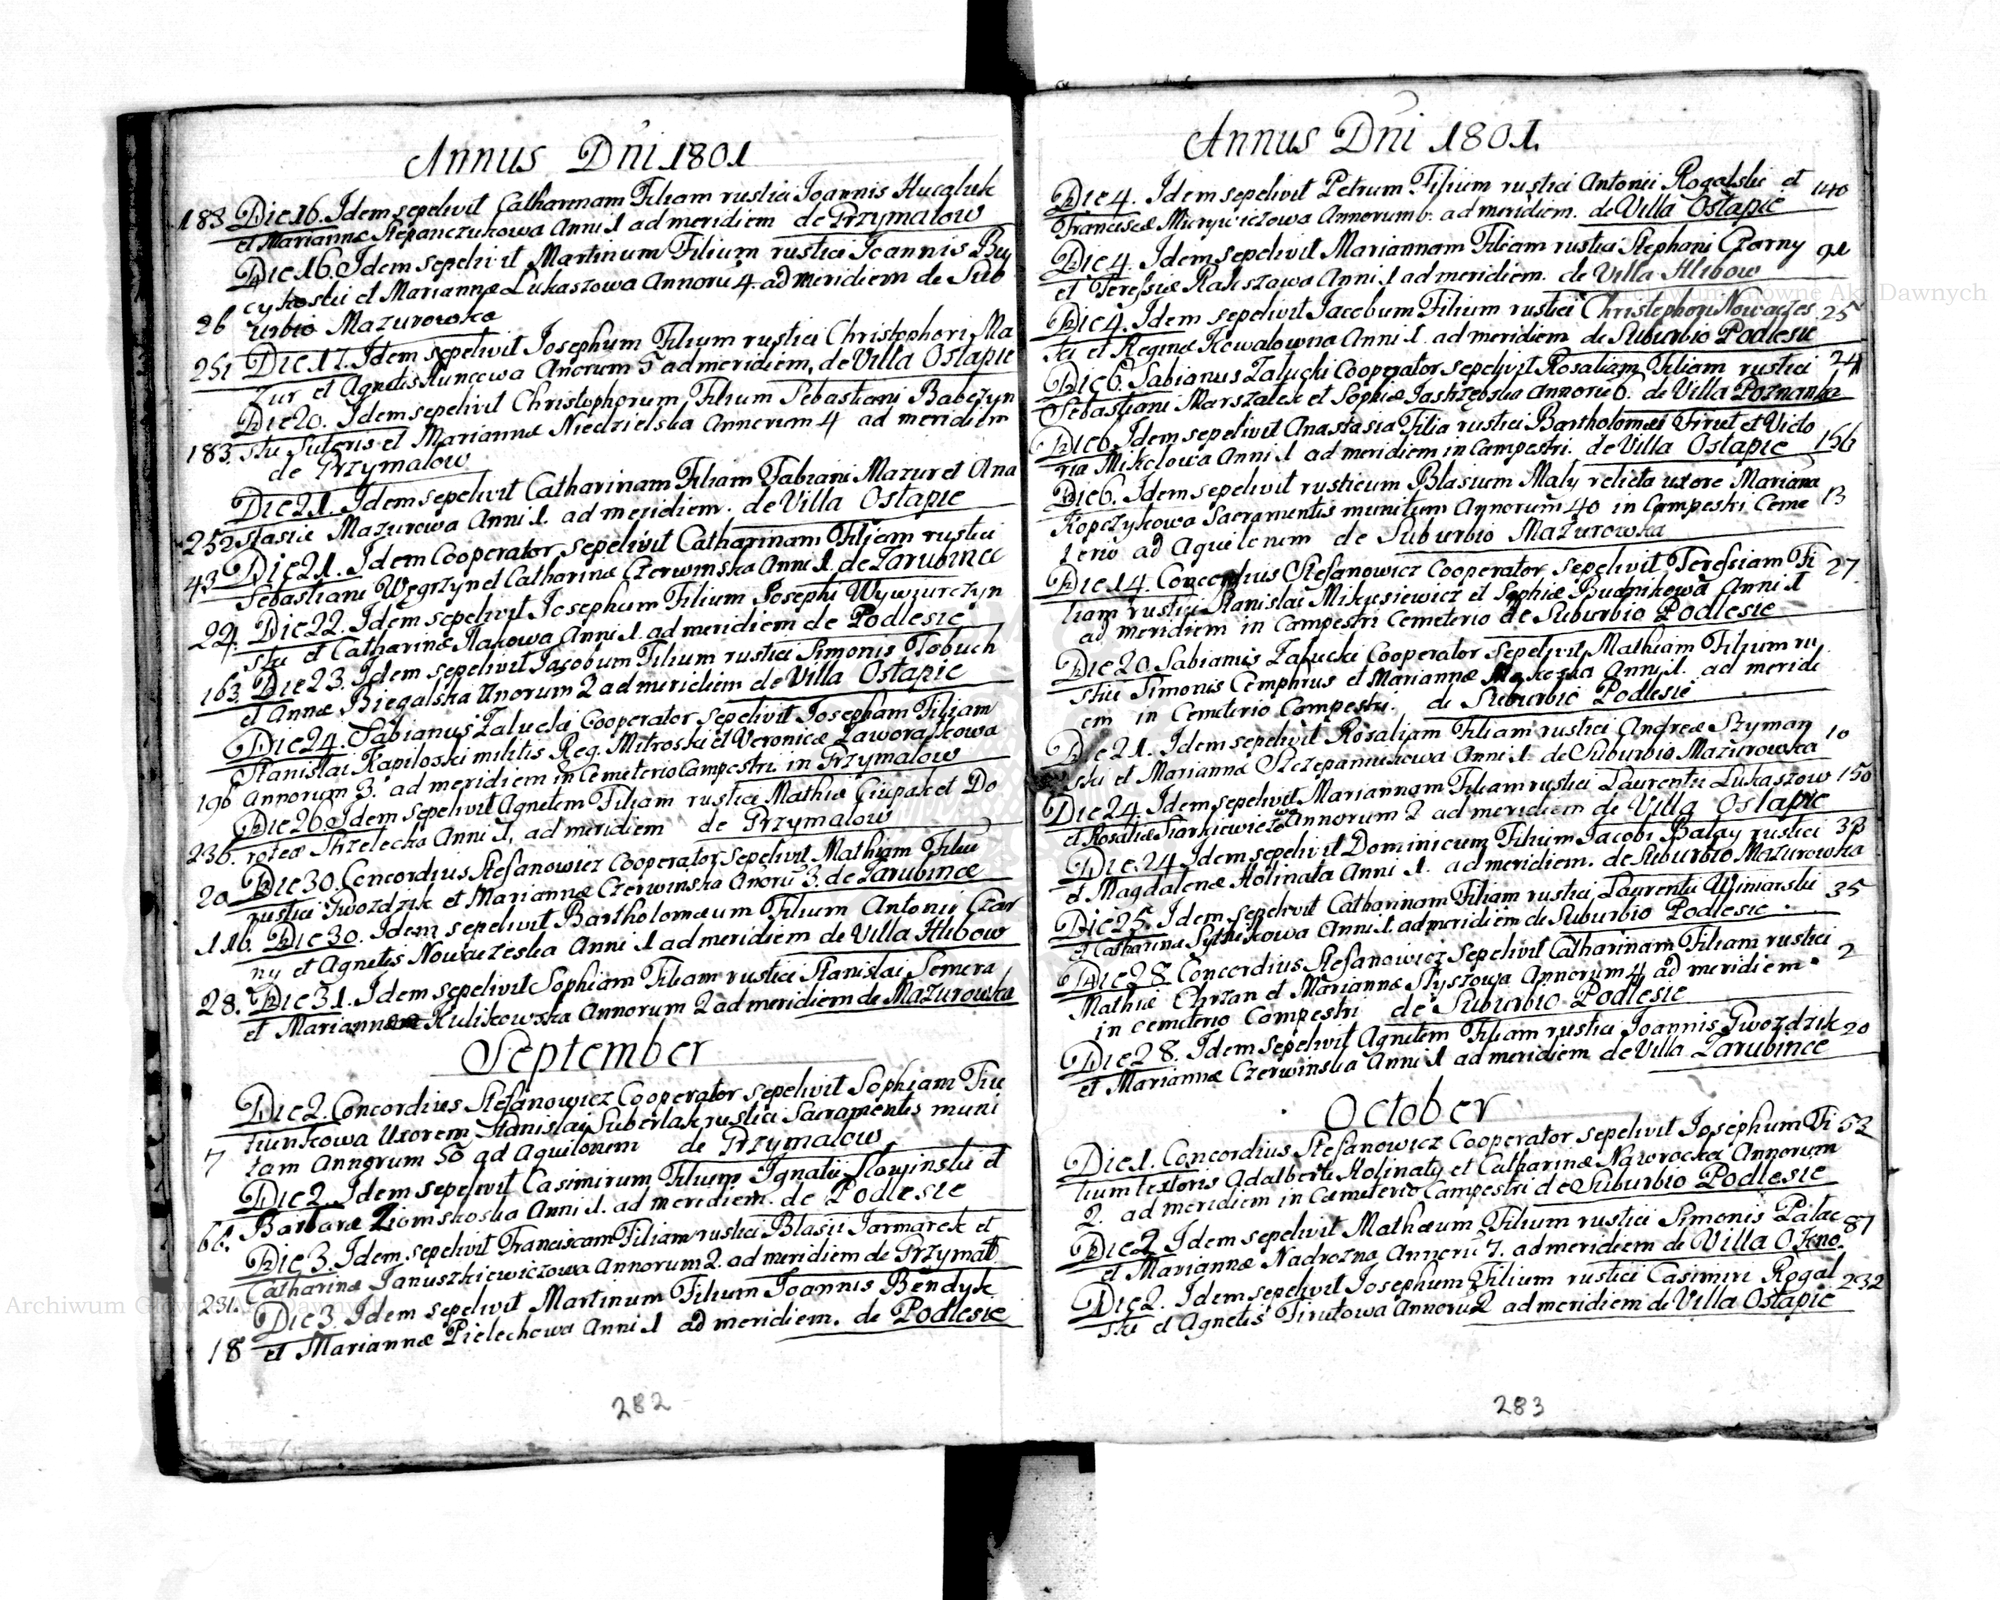 Annus Dni 1801
183 Die 16. Idem sepelivit Catharinam Filiam rustici Joannis Huculak
et Mariannæ Stepanczukowa Anni 1 ad meridiem de Grzymalow
Die 16. Idem sepelivit Martinum Filium rustici Joannis By
cykoski et Mariannæ Lukaszowa Annorū 4. ad meridiem de Sub
26 urbio Mazurowka
251 Die 17. Idem sepelivit Josephum Filium rustici Christophori Ma
zur et Agnetis Kuncowa Anorum 5 ad meridiem, de Villa Ostapie
Die 20. Idem sepelivit Christophorum Filium Sebastiani Babczyn
183. ski Sutoris et Mariannæ Niedzielska Annorum 4 ad meridiem
de Grzymalow
Die 21. Idem sepelivit Catharinam Filiam Fabiani Mazur et Ana
252 stasiæ Mazurowa Anni 1. ad meridiem. de Villa Ostapie
43 Die 21. Idem Cooperator sepelivit Catharinam Filiam rustici
Sebastiani Węgrzyn et Catharinæ Czerwinska Anni 1. de Zarubince
224. Die 22. Idem sepelivit Josephum Filium Josephi Wywzurczyn
ski et Catharinæ Jakowa Anni 1. ad meridiem de Podlesie
163. Die 23. Idem sepelivit Jacobum Filium rustici Simonis Tobuch
et Annæ Biegalska Anorum 2 ad meridiem de Villa Ostapie
Die 24. Fabianus Zalucki Cooperator sepelivit Josepham Filiam
Stanislai Kapiloski militis Reg. Mitroski et Veronicæ Jaworazkowa
196 Annorum 3. ad meridiem in Cemeterio Campestri in Grzymalow
Die 26 Idem sepelivit Agnetem Filiam rustici Mathiæ Ciupak et Do
236. roteæ Strzelecka Anni 1, ad meridiem de Grzymalow
20 Die 30. Concordius Stefanowicz Cooperator Sepelivit Mathiam Filiū
rustici Gwozdzik et Mariannæ Czerwinska Anorū 3. de Zarubince
116. Die 30. Idem sepelivit Bartholomæum Filium Antonii Czar
ny et Agnetis Nowaczeska Anni 1 ad meridiem de Villa Hlibow
28. Die 31. Idem sepelivit Sophiam Filiam rustici Stanislai Semera
et Mariannæ Kulikowska Annorum 2 ad meridiem de Mazurowka
September
Die 2. Concordius Stefanowicz Cooperator sepelivit Sophiam
Uxorem Stanislai Suberlak rustici Sacramentis muni
7 tam Annorum 50 ad Aquilonem de Grzymalow
Die 2. Idem sepelivit Casimirum Filium Ignatii Slowinski et
66. Barbaræ Ziomskoska Anni 1. ad meridiem. de Podlesie
Die 3. Idem sepelivit Franciscam Filiam rustici Blasii Jarmarek et
231. Catharinæ Januszkiewiczowa Annorum 2. ad meridiem de Grzymał
Die 3. Idem sepelivit Martinum Filium Joannis Bendyk
18 et Mariannæ Pielechowa Anni 1 ad meridiem. de Podlesie
282
Annus Dni 1801.
Die 4. Idem sepelivit Petrum Filium rustici Antonii Rogalski et 140
Franciscæ Annorum 6. ad meridiem. de Villa Ostapie
Die 4. Idem sepelivit Mariannam Filiam rustici Stephani Czarny 91
et Teressiæ Anni 1 ad meridiem. de Villa Hlibow
Die 4. Idem sepelivit Jacobum Filium rustici Christophori Nowaczes 25
ki et Reginæ Kowalowna Anni 1. ad meridiem de Suburbio Podlesie
Die 6. Fabianus Zalucki Cooperator sepelivit Rosaliam Filiam rustici 24
Sebastiani Marszalek et Sophiæ Jastrzębska Annorū 6. de Villa Poznanka
Die 6. Idem sepelivit Anastasia Filia rustici Bartholomæi Firut et Victo
ria Mikolowa Anni 1 ad meridiem in Campestri. de Villa Ostapie 156
Die 6. Idem sepelivit rusticum Blasium Maly relicta uxore Mariana
Kopczykowa Sacramentis munitum Annorum 40 in Campestri Ceme 13
terio ad Aquilonem de Suburbio Mazurowka
Die 14. Concordius Stefanowicz Cooperator sepelivit Teressiam Fi 27
liam rustici Stanislai Mikusiewicz et Sophiæ Budnikowa Anni 1
ad meridiem in Campestri Cemeterio de Suburbio Podlesie
Die 20 Fabianus Zalucki Cooperator sepelivit Mathiam Filium ru
stici Simonis Cemphrus et Mariannæ Makoska Anni 1. ad meridi
em in Cemeterio Campestri. de Suburbio Podlesie
Die 21. Idem sepelivit Rosaliam Filiam rustici Andreæ Szyman 10
ski et Mariannæ Szczepaniukowa Anni 1. de Suburbio Mazurowka
Die 24. Idem sepelivit Mariannam Filiam rustici Laurentii Lukaszow 150
et Rosaliæ Siarkiewiczowa Annorum 2 ad meridiem de Villa Ostapie
Die 24 Idem sepelivit Dominicum Filium Jacobi Balay rustici 33
et Magdalenæ Holinata Anni 1. ad meridiem. de Suburbio Mazurowka
Die 25. Idem sepelivit Catharinam Filiam rustici Laurentii Winiarski 35
et Catharinæ Anni 1. ad meridiem de Suburbio Podlesie.
Die 28. Concordius Stefanowicz Sepelivit Catharinam Filiam rustici 2
Mathiæ Chrzan et Mariannæ Styszowa Annorum 4 ad meridiem
in cemeterio Campestri de Suburbio Podlesie
Die 28. Idem sepelivit Agnetem Filiam rustici Joannis Gwozdzik 20
et Mariannæ Czerwinska Anni 1 ad meridiem de Villa Zarubince
October
Die 1. Concordius Stefanowicz Cooperator sepelivit Josephum Fi 53
lium textoris Adalberti Holinaty et Catharinæ Nawrocka Annorum
2. ad meridiem in Cæmeterio Campestri de Suburbio Podlesie
Die 2 Idem sepelivit Mathæum Filium rustici Simonis Palac 87
et Mariannæ Nadrozna Annorū 7. ad meridiem de Villa Okno.
Die 2. Idem sepelivit Josephum Filium rustici Casimiri Rogal 232
ski et Agnetis Firutowa Annorū 2 ad meridiem de Villa Ostapie
283
Archiwum Główne Akt Dawnych
Archiwum Główne Akt Dawnych